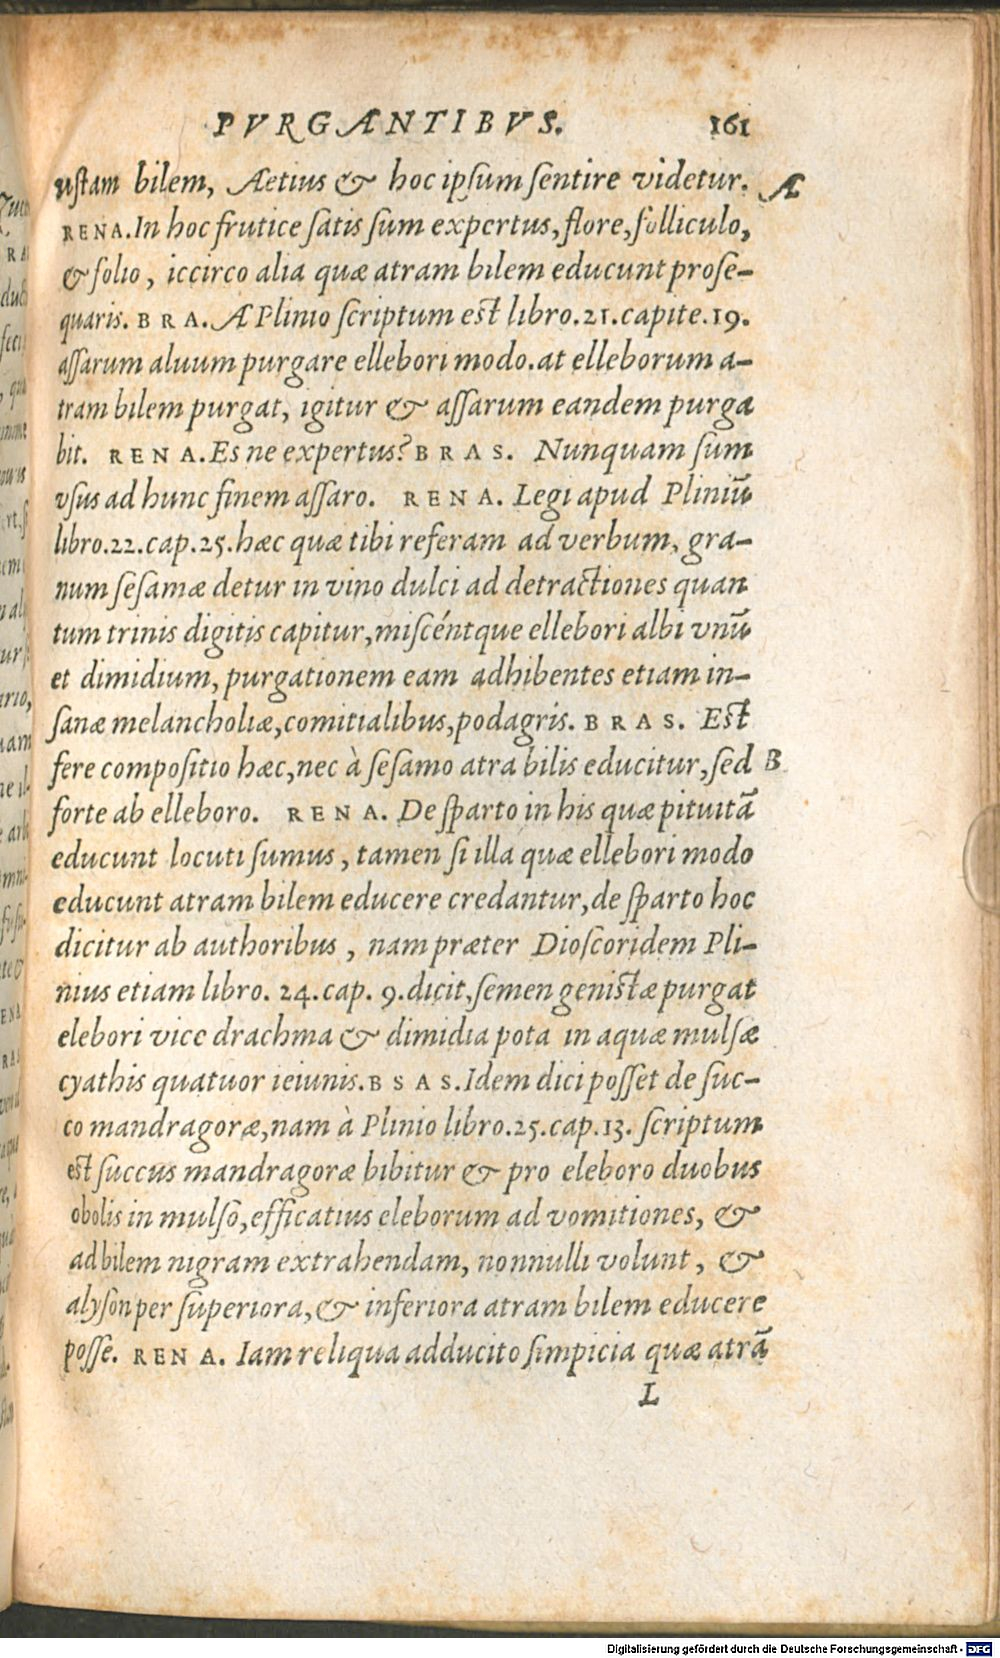 PVRGANTIBVS. 161
ustam bilem, Aetius & hoc ipsum sentire videtur. A
RENA. In hoc frutice satis sum expertus, flore, folliculo,
& folio, iccirco alia quæ atram bilem educunt prose-
quaris. BRA. A Plinio scriptum est libro.21.capite.19.
assarum aluum purgare ellebori modo. at elleborum a-
tram bilem purgat, igitur & assarum eandem purga
bit. RENA. Es ne expertus? BRAS. Nunquam sum
vsus ad hunc finem assaro. RENA. Legi apud Pliniū
libro.22.cap.25.hæc quæ tibi referam ad verbum, gra-
num sesamæ detur in vino dulci ad detractiones quan
tum trinis digitis capitur, miscéntque ellebori albi vnū
et dimidium, purgationem eam adhibentes etiam in-
sanæ melancholiæ, comitialibus, podagris. BRAS. Est
fere compositio hæc, nec à sesamo atra bilis educitur, sed B
forte ab elleboro. RENA. De sparto in his quæ pituitā
educunt locuti sumus, tamen si illa quæ ellebori modo
educunt atram bilem educere credantur, de sparto hoc
dicitur ab authoribus, nam præter Dioscoridem Pli-
nius etiam libro. 24.cap. 9.dicit, semen genistæ purgat
elebori vice drachma & dimidia pota in aquæ mulsæ
cyathis quatuor ieiunis. BSAS. Idem dici posset de suc-
co mandragoræ, nam à Plinio libro.25.cap.13. scriptum
est succus mandragoræ bibitur & pro eleboro duobus
obolis in mulso, efficatius eleborum ad vomitiones, &
ad bilem nigram extrahendam, nonnulli volunt, &
alyson per superiora, & inferiora atram bilem educere
posse. RENA. Iam reliqua adducito simpicia quæ atrā
L
Digitalisierung gefördert durch die Deutsche Forschungsgemeinschaft - DFG